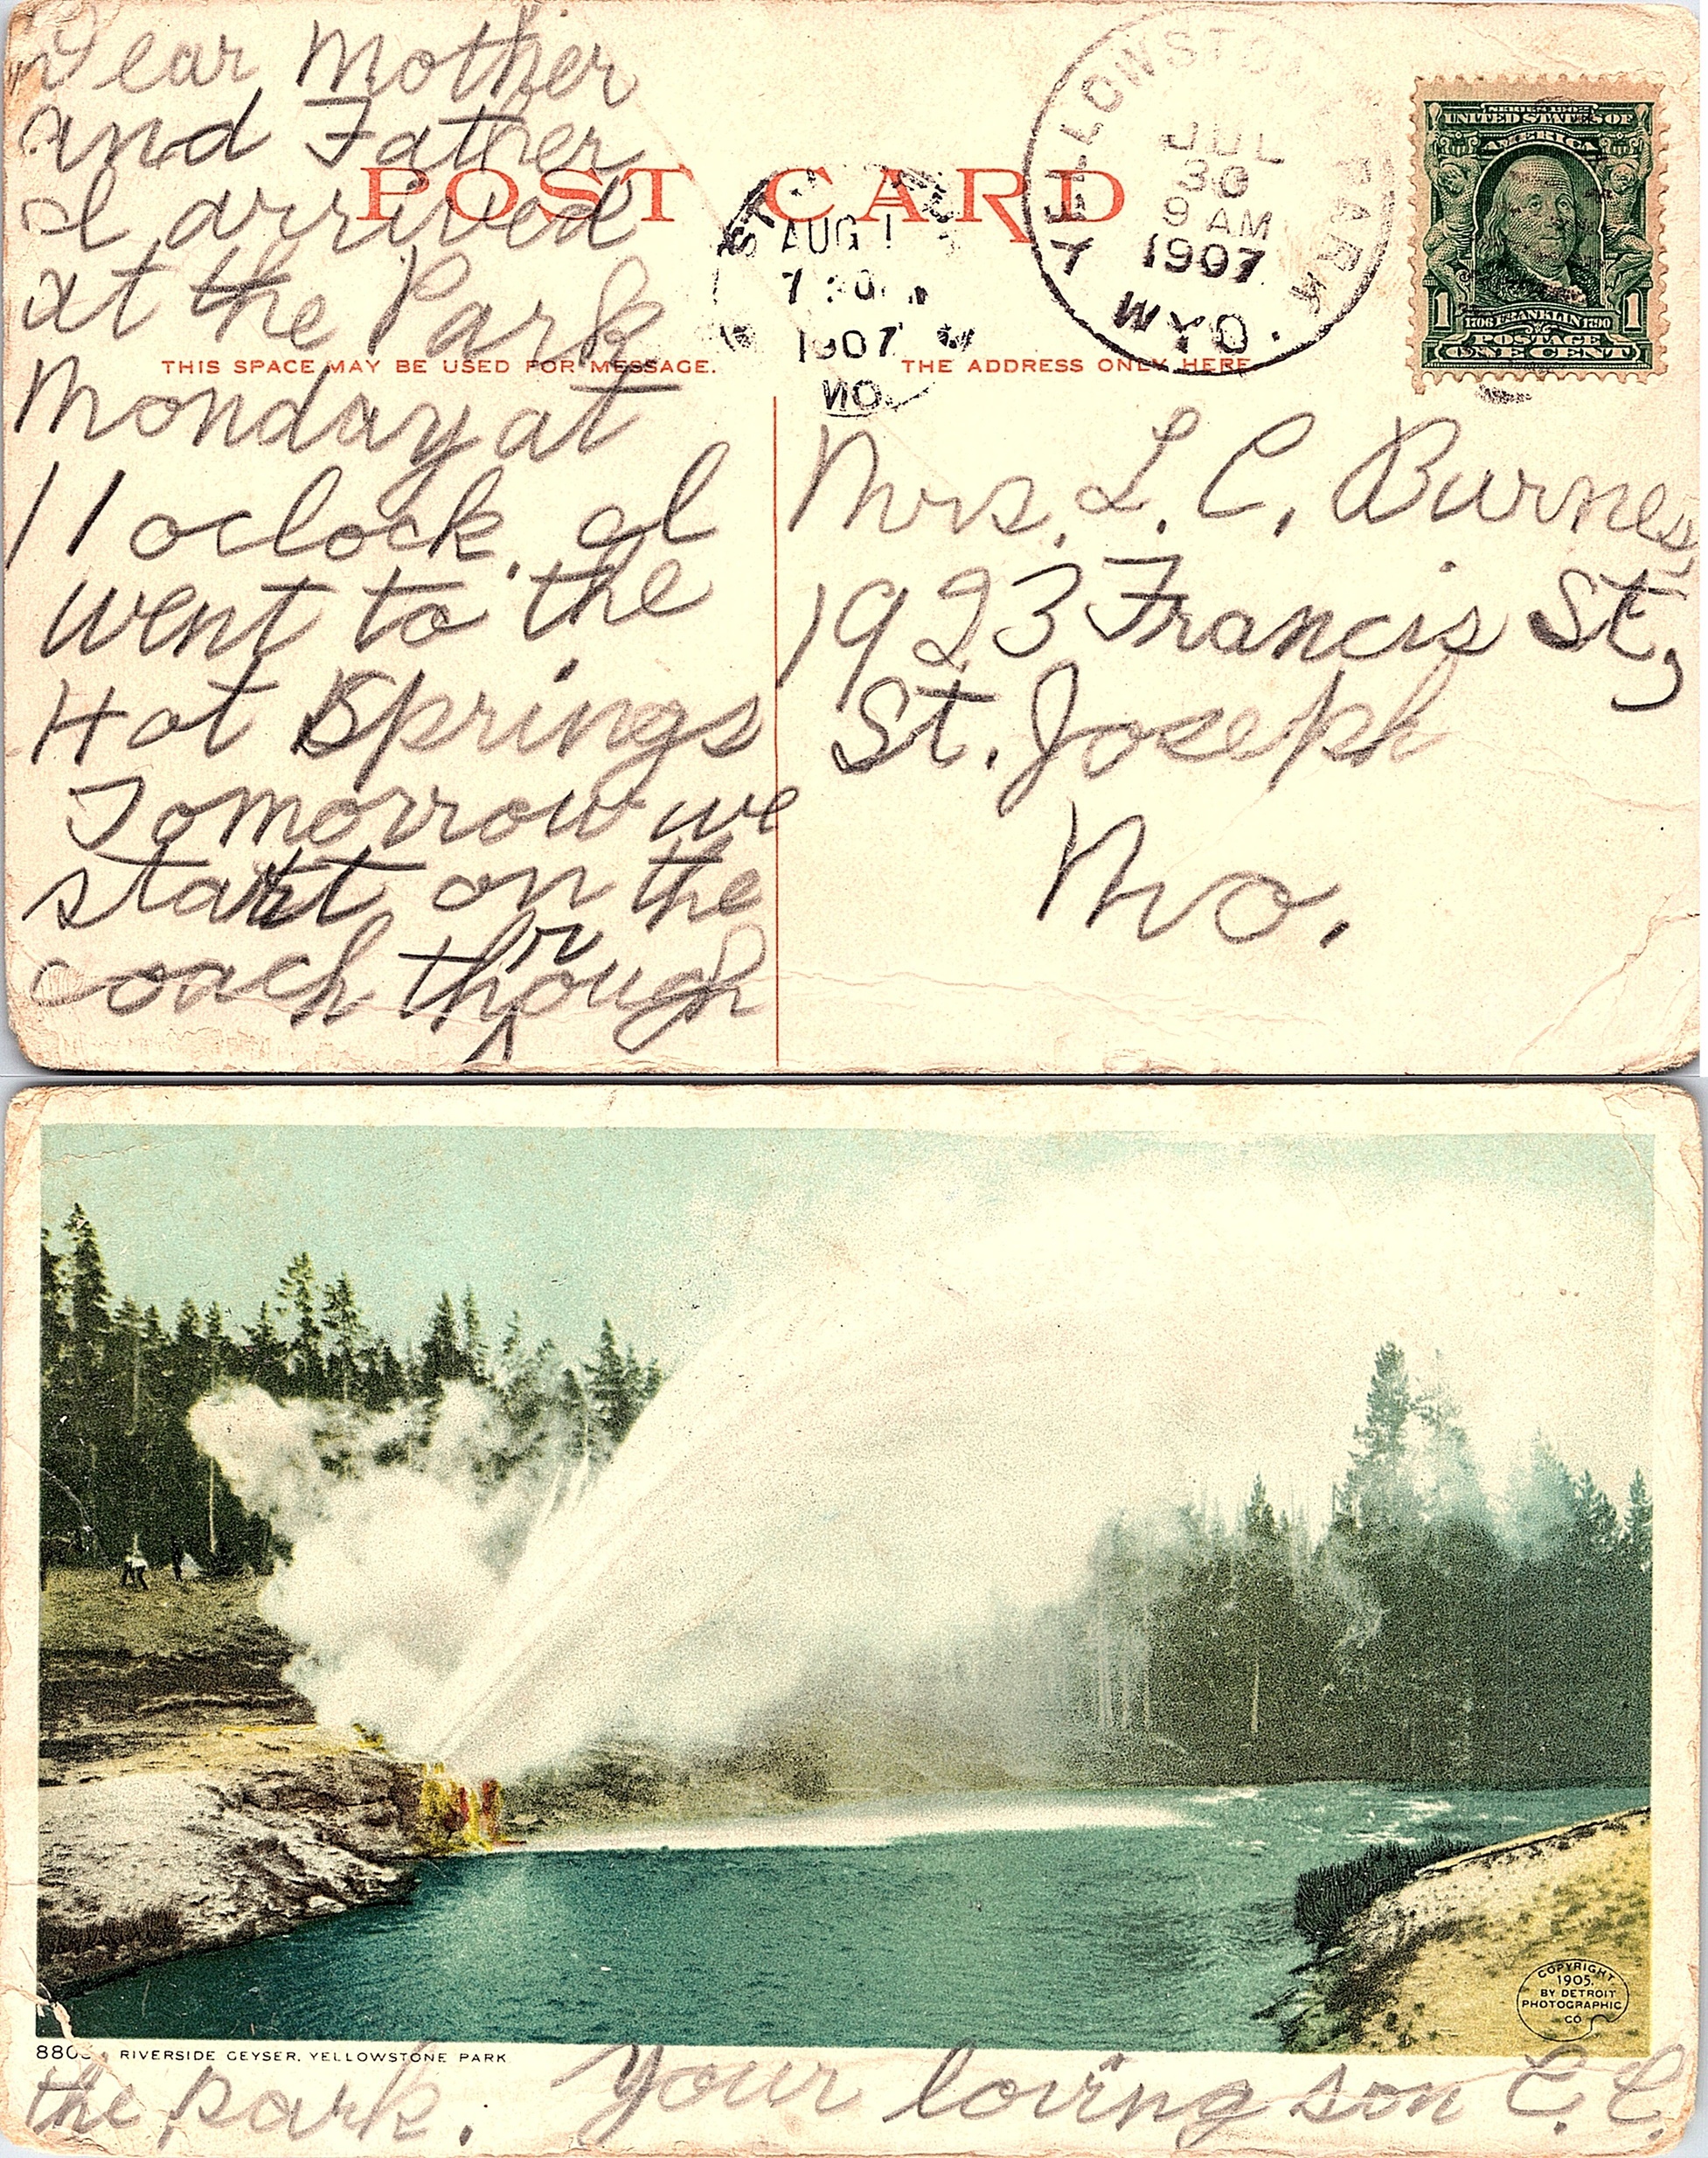 Dear Mother
and Father
I arrived
at the Park
Monday at
11 oclock. I
went to the
Hot Springs
Tomorrow we
start on the
coach through
POST CARD
THIS SPACE MAY BE USED FOR MESSAGE.
THE ADDRESS ONLY HERE
AUG 1
1907
MO.
YELLOWSTONE PARK
JUL
30
9 AM
1907
WYO.
SERIES 1902
UNITED STATES OF
AMERICA
1 1706 FRANKLIN 1790 1
POSTAGE
ONE CENT
Mrs. L. C. Burnes,
1923 Francis St,
St. Joseph
Mo.
COPYRIGHT
1905,
BY DETROIT
PHOTOGRAPHIC
CO
RIVERSIDE GEYSER, YELLOWSTONE PARK
the park. Your loving son C. C.